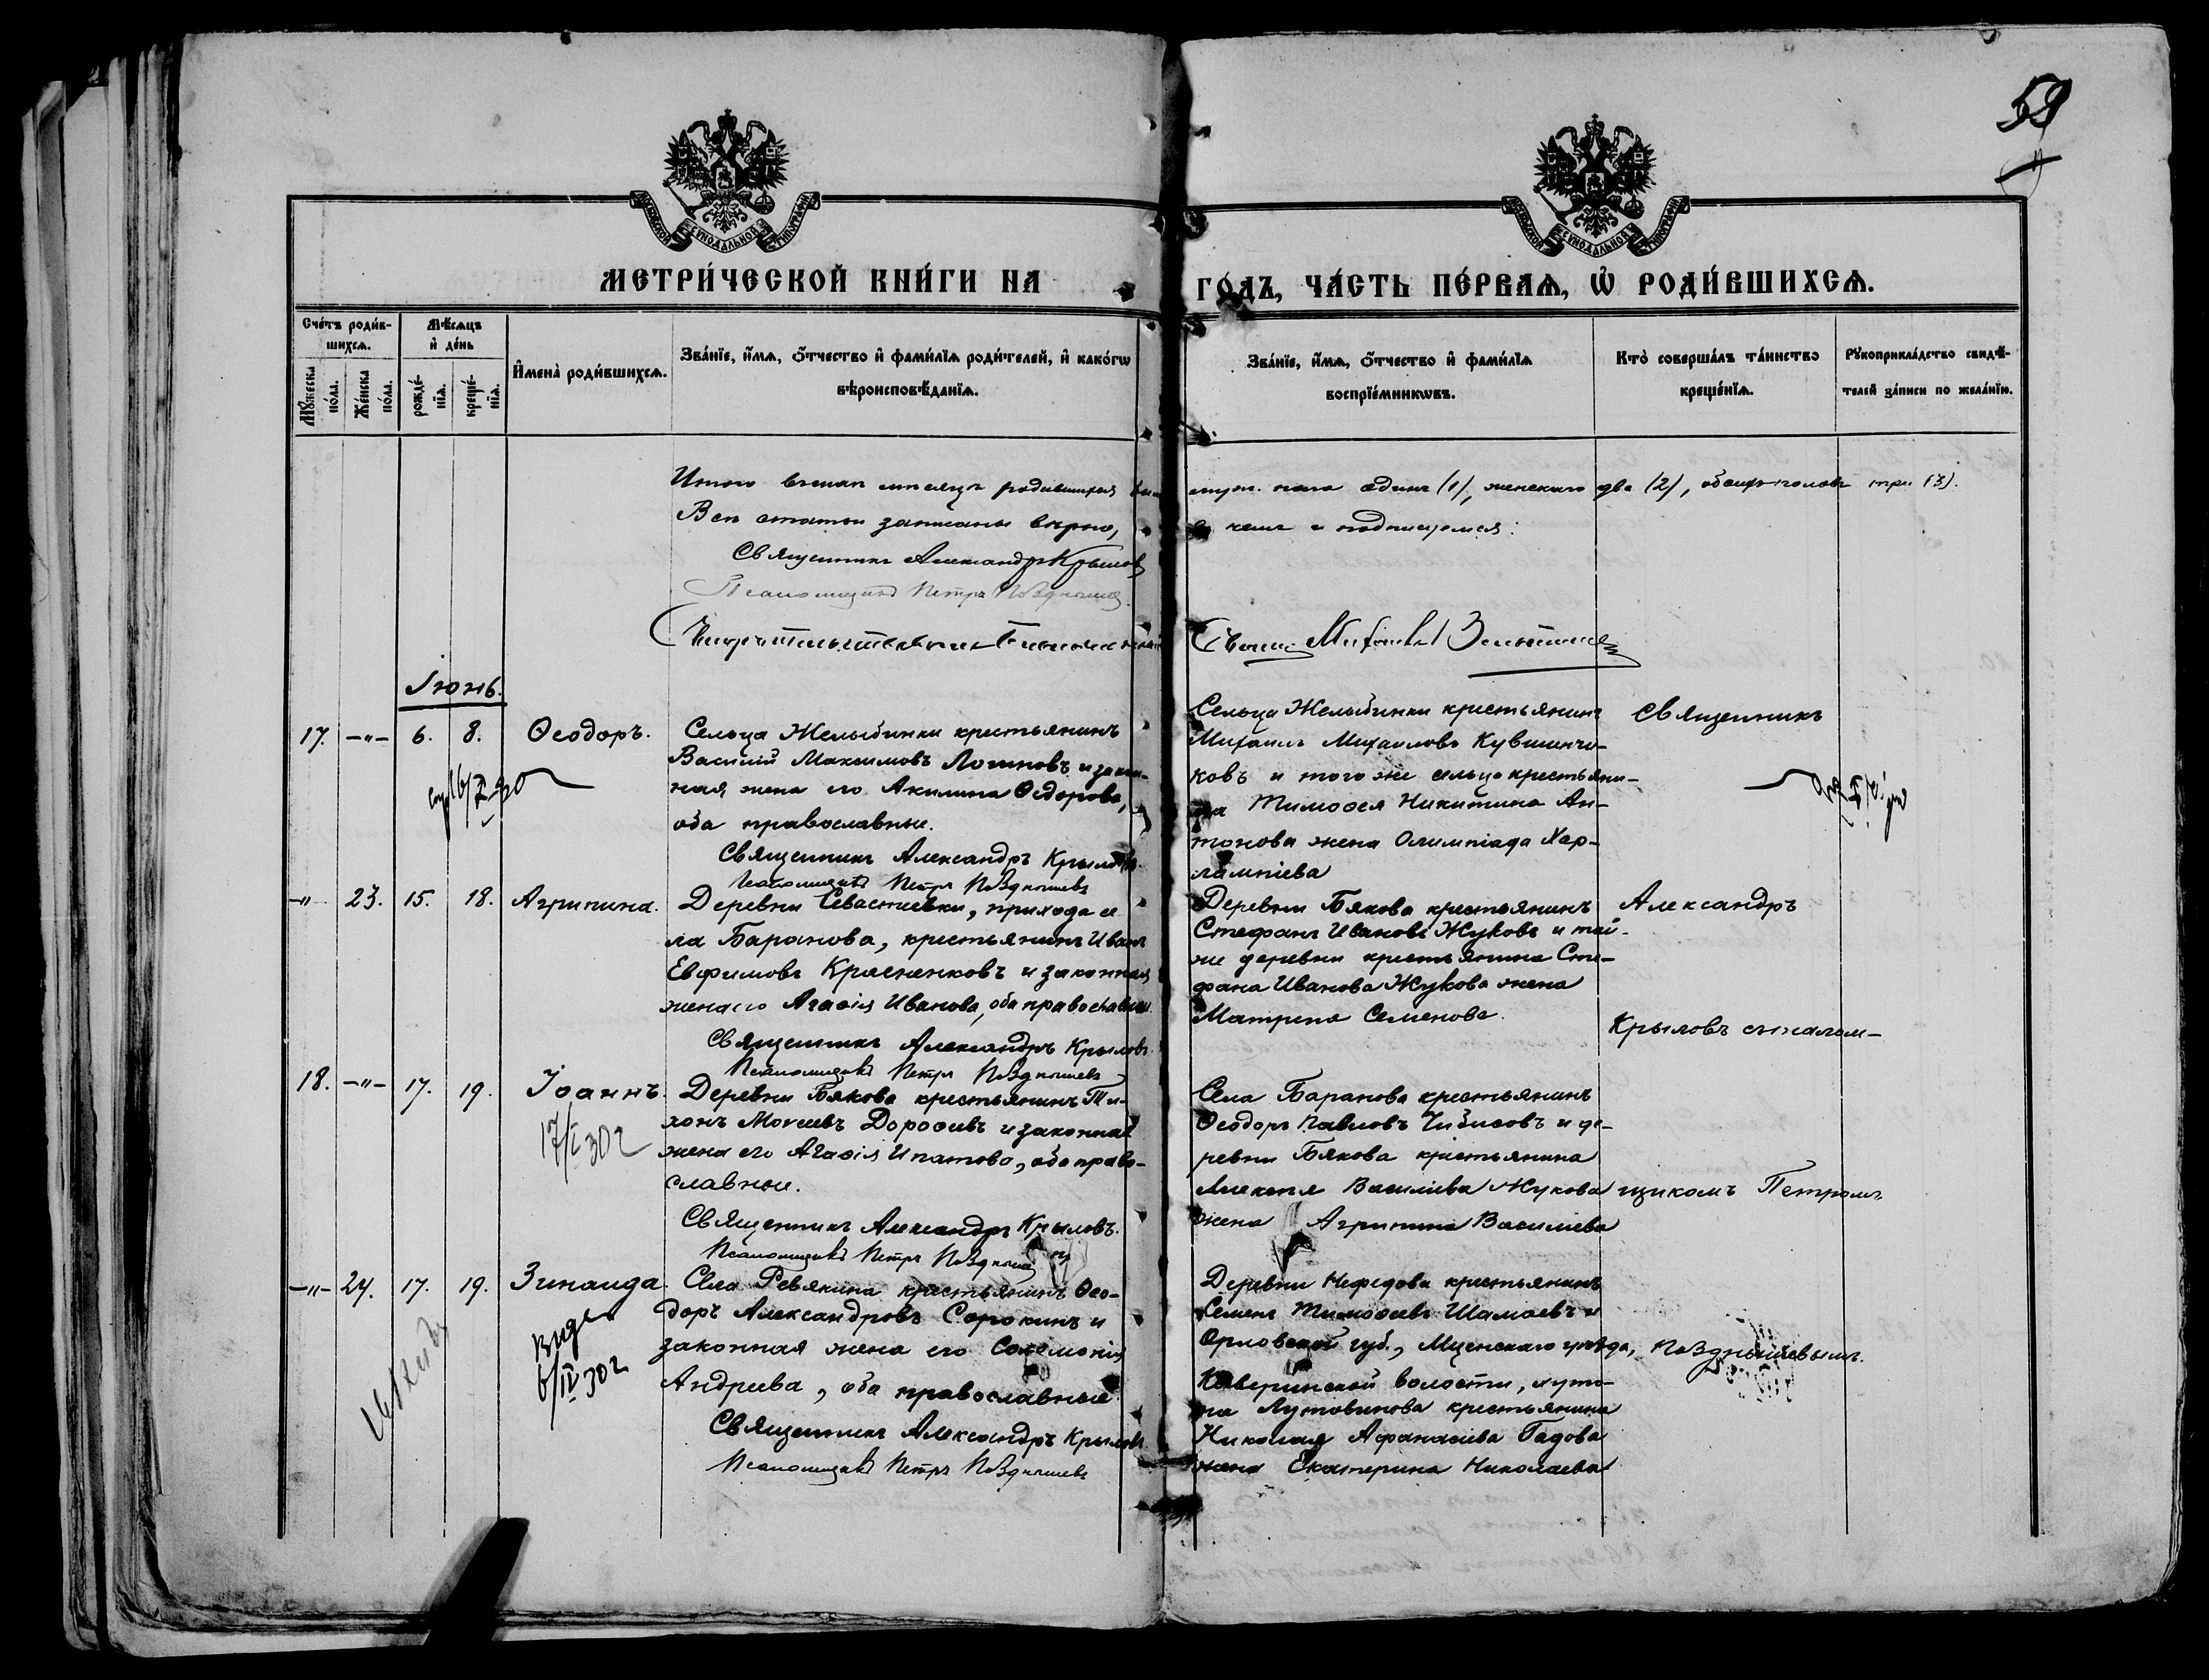 59
МОСКОВСКОЙ СѴНОДАЛЬНОЙ ТИПОГРАФІИ
МОСКОВСКОЙ СѴНОДАЛЬНОЙ ТИПОГРАФІИ
МЕТРИ́ЧЕСКОЙ КНИ́ГИ НА ГО́ДЪ, ЧА́СТЬ ПЕ́РВАѦ, Ѡ҆ РОДИ́ВШИХСѦ.
Сче́тъ роди́в-
шихсѧ.
Мꙋ́жеска
по́ла.
Же́нска
по́ла.
Мѣ́сѧцъ
и҆ де́нь
рожде́-
нїѧ.
креще́-
нїѧ.
И҆мена̀ роди́вшихсѧ.
Зва́нїе, и҆́мѧ, ѻ҆́тчество и҆ фами́лїѧ роди́телей, и҆ како́гѡ
вѣроисповѣ́данїѧ.
Зва́нїе, и҆́мѧ, ѻ҆́тчество и҆ фами́лїѧ
воспрїе́мникѡвъ.
Кто̀ соверша́лъ та́инство
креще́нїѧ.
Рꙋкоприкла́дство свидѣ́-
телей за́писи по жела́нїю.
Итого въ маѣ мѣсяцѣ родившихся муж. пола одинъ (1), женскаго два (2), обоихъ половъ три (3).
Всѣ статьи записаны вѣрно, въ чемъ и подписуемся:
Священникъ Александръ Крыловъ
Псаломщикъ Петръ Позднышевъ
Михаилъ
Іюнь.
17. -"- 6. 8. Ѳеодоръ.
Сельца Желыбинки крестьянинъ
Василій Максимовъ Логиновъ и закон-
ная жена его Акилина Ѳедорова,
оба православные.
Священникъ Александръ Крыловъ.
Псаломщикъ Петръ Позднышевъ
Сельца Желыбинки крестьянинъ
Михаилъ Михаиловъ Кувшинчи-
ковъ и того же сельца крестьяни-
на Тимоѳея Никитина Ан-
тонова жена Олимпіада Хар-
лампіева
Священникъ
-"- 23. 15. 18. Агрипина.
Деревни Севастиевки, прихода се-
ла Баранова, крестьянинъ Иванъ
Евфимовъ Красненковъ и законная
жена его Агаѳія Иванова, оба православные
Священникъ Александръ Крыловъ.
Псаломщикъ Петръ Позднышевъ
Деревни Бякова крестьянинъ
Стефанъ Ивановъ Жуковъ и той-
же деревни крестьянина Сте-
фана Иванова Жукова жена
Матрена Семенова.
Александръ
Крыловъ съ псалом-
18. -"- 17. 19. Іоаннъ.
17/I 30 г
Деревни Бякова крестьянинъ Ти-
хонъ Моисеевъ Дороѳеевъ и законная
жена его Агаѳія Ипатова, оба право-
славные.
Священникъ Александръ Крыловъ.
Псаломщикъ Петръ Позднышевъ
Села Баранова крестьянинъ
Ѳеодоръ Павловъ Чибисовъ и де-
ревни Бякова крестьянина
Алексѣя Василіева Жукова
жена Агрипина Василіева
щикомъ Петромъ
-"- 24. 17. 19. Зинаида.
6/IV 30 г
Села Ревякина крестьянинъ Ѳео-
доръ Александровъ Сорокинъ и
законная жена его Соломонія
Андреева, оба православные.
Священникъ Александръ Крыловъ
Псаломщикъ Петръ Позднышевъ
Деревни Нефедова крестьянинъ
Семенъ Тимоѳеевъ Шамаевъ и
Орловской губ., Мценскаго уѣзда,
волости, хуто-
ра Лутовинова крестьянина
Николая Афанасіева Гадова
жена Екатерина Николаева
Позднышевымъ.